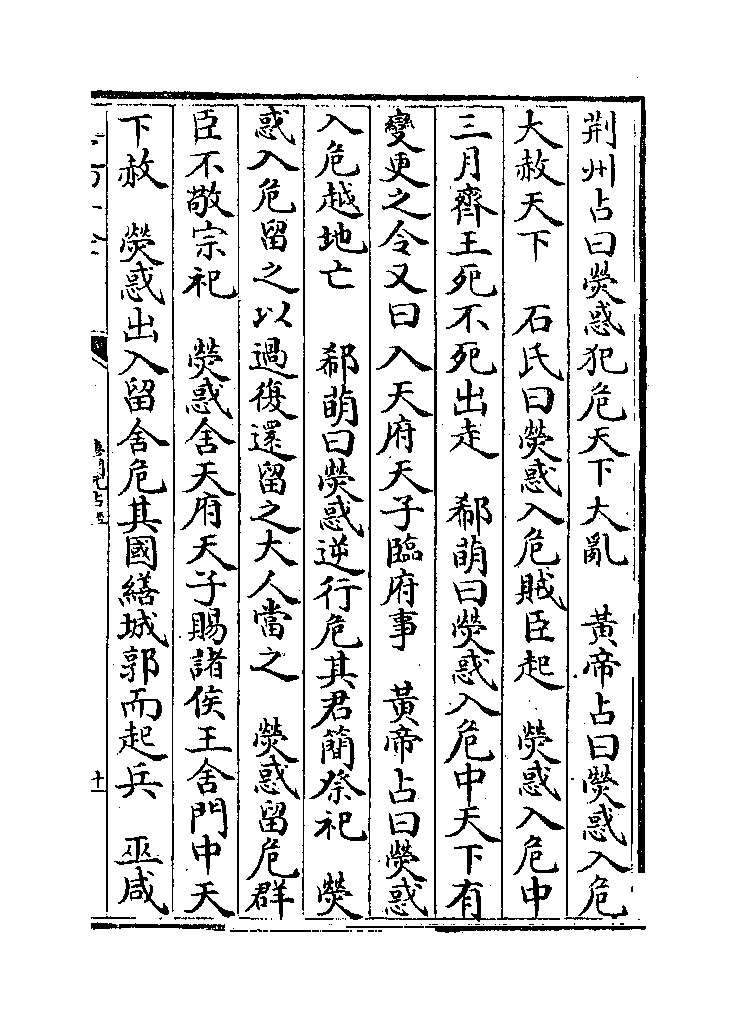 荆州占曰熒惑犯危天下大亂　黃帝占曰熒惑入危
大赦天下　石氏曰熒惑入危賊臣起　熒惑入危中
三月齊王死不死出走　郗萌曰熒惑入危中天下有
變更之令又曰入天府天子臨府事　黃帝占曰熒惑
入危越地亡　郗萌曰熒惑逆行危其君簡祭祀　熒
惑入危留之以過復還留之大人當之　熒惑留危群
臣不敬宗祀　熒惑舍天府天子賜諸侯王舍門中天
下赦　熒惑出入留舍危其國繕城郭而起兵　巫咸
十